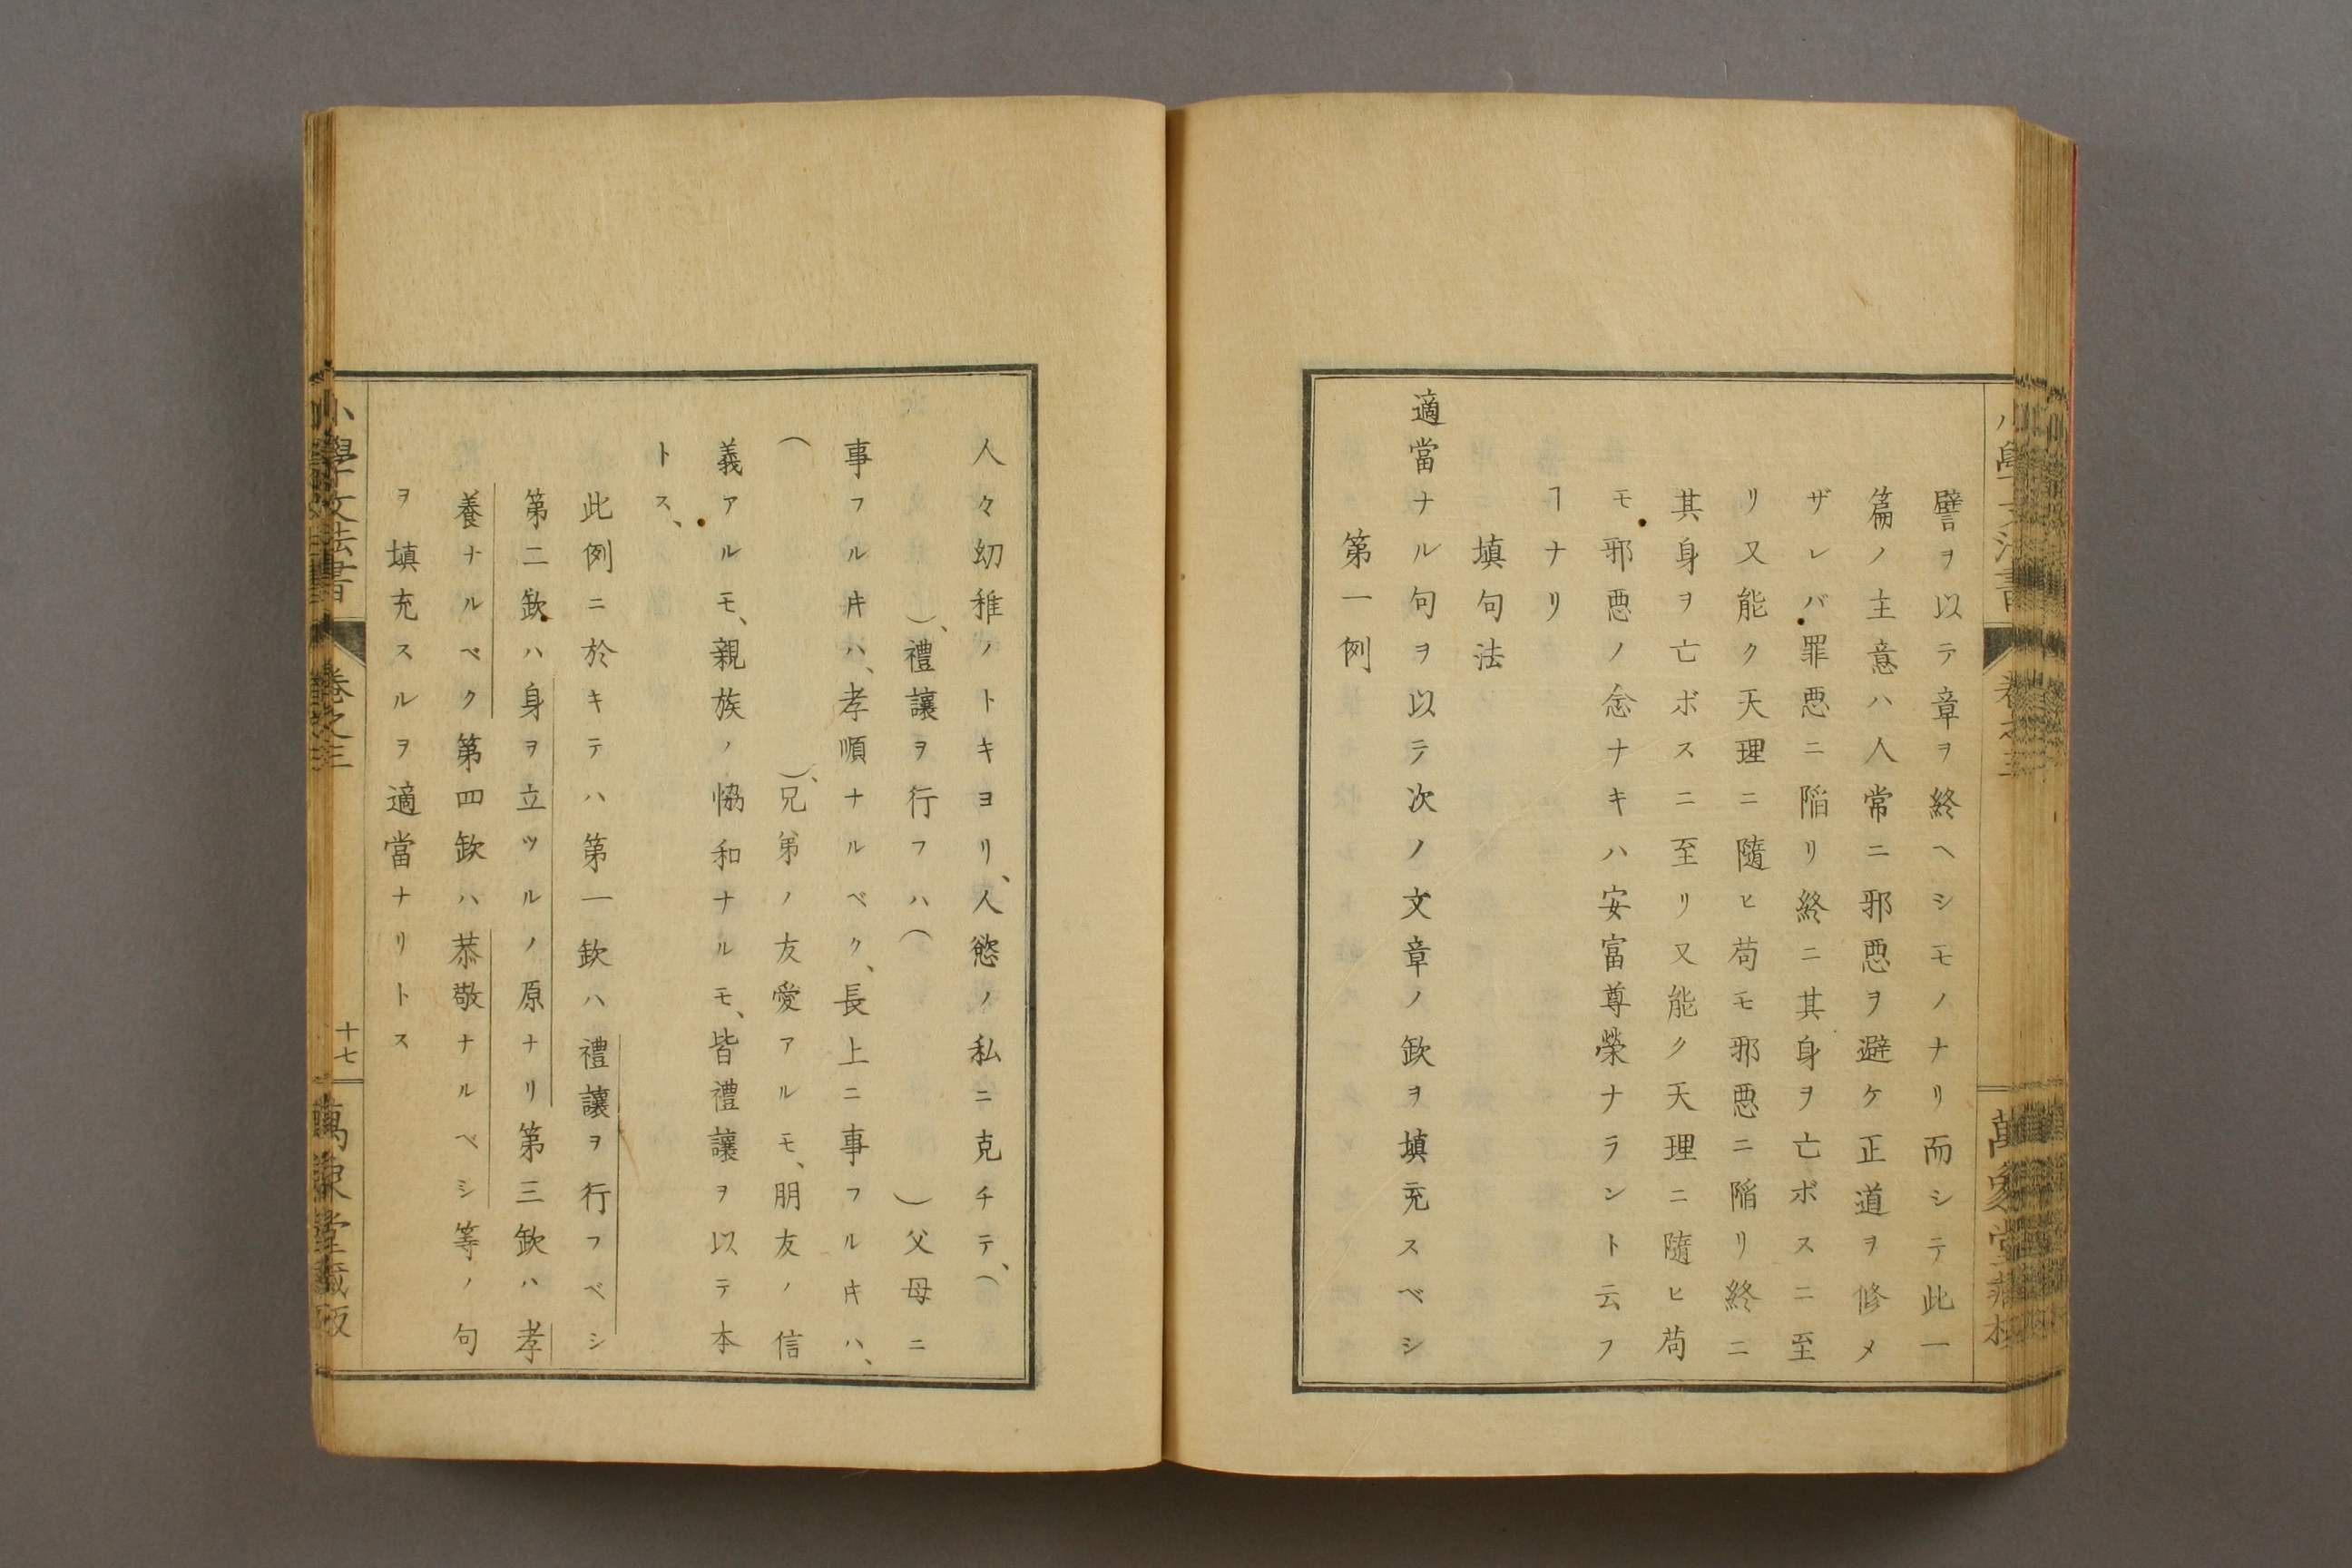 譬ヲ以テ章ヲ終ヘシモノナリ而シテ此一
篇ノ主意ハ人常ニ邪惡ヲ避ケ正道ヲ修メ
ザレバ罪惡ニ陷リ終ニ其身ヲ亡ボスニ至
リ又能ク天理ニ隨ヒ苟モ邪惡ニ陷リ終ニ
其身ヲ亡ボスニ至リ又能ク天理ニ隨ヒ苟
モ邪惡ノ念ナキハ安富尊榮ナラント云フ
ヿナリ
填句法
適當ナル句ヲ以テ次ノ文章ノ欽ヲ填充スベシ
第一例
人々幼稚ノトキヨリ、人慾ノ私ニ克チテ、(
)、禮讓ヲ行フハ( )父母ニ
事フルキハ、孝順ナルベク、長上ニ事フルキハ、
( )、兄弟ノ友愛アルモ、朋友ノ信
義アルモ、親族ノ恊和ナルモ、皆禮讓ヲ以テ本
トス、
此例ニ於キテハ第一欽ハ禮讓ヲ行フベシ
第二欽ハ身ヲ立ツルノ原ナリ第三欽ハ孝
養ナルベク第四欽ハ恭敬ナルベシ等ノ句
ヲ填充スルヲ適當ナリトス
小學文法書 卷之三 十七